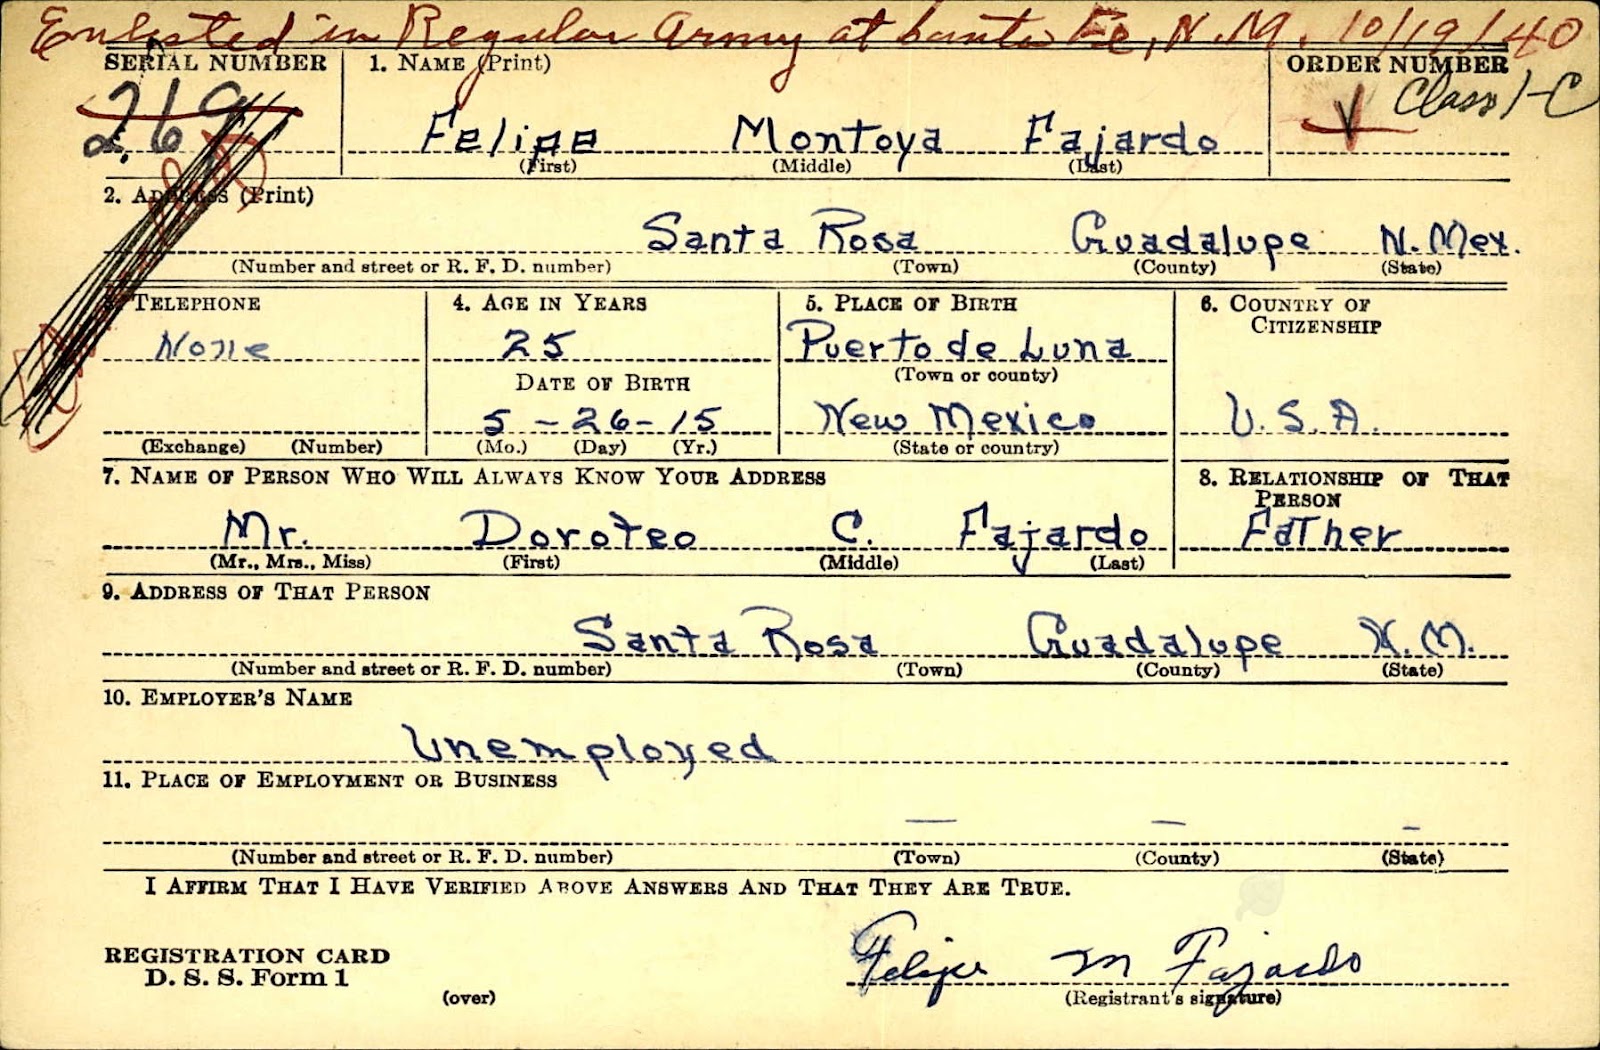 Enlisted in Regular Army at Santa Fe, N.M. 10/19/40
SERIAL NUMBER 1. NAME (Print) ORDER NUMBER
269 Felipe Montoya Fajardo Class 1-C
(First) (Middle) (Last)
2. ADDRESS (Print)
Santa Rosa Guadalupe N. Mex.
(Number and street or R. F. D. number) (Town) (County) (State)
3. TELEPHONE 4. AGE IN YEARS 5. PLACE OF BIRTH 6. COUNTRY OF CITIZENSHIP
None 25 Puerto de Luna
(Town or county)
DATE OF BIRTH
5-26-15 New Mexico U.S.A.
(Exchange) (Number) (Mo.) (Day) (Yr.) (State or country)
7. NAME OF PERSON WHO WILL ALWAYS KNOW YOUR ADDRESS 8. RELATIONSHIP OF THAT PERSON
Mr. Doroteo C. Fajardo Father
(Mr., Mrs., Miss) (First) (Middle) (Last)
9. ADDRESS OF THAT PERSON
Santa Rosa Guadalupe N.M.
(Number and street or R. F. D. number) (Town) (County) (State)
10. EMPLOYER'S NAME
Unemployed
11. PLACE OF EMPLOYMENT OR BUSINESS
— — —
(Number and street or R. F. D. number) (Town) (County) (State)
I AFFIRM THAT I HAVE VERIFIED ABOVE ANSWERS AND THAT THEY ARE TRUE.
REGISTRATION CARD
D. S. S. Form 1
Felipe M Fajardo
(over) (Registrant's signature)